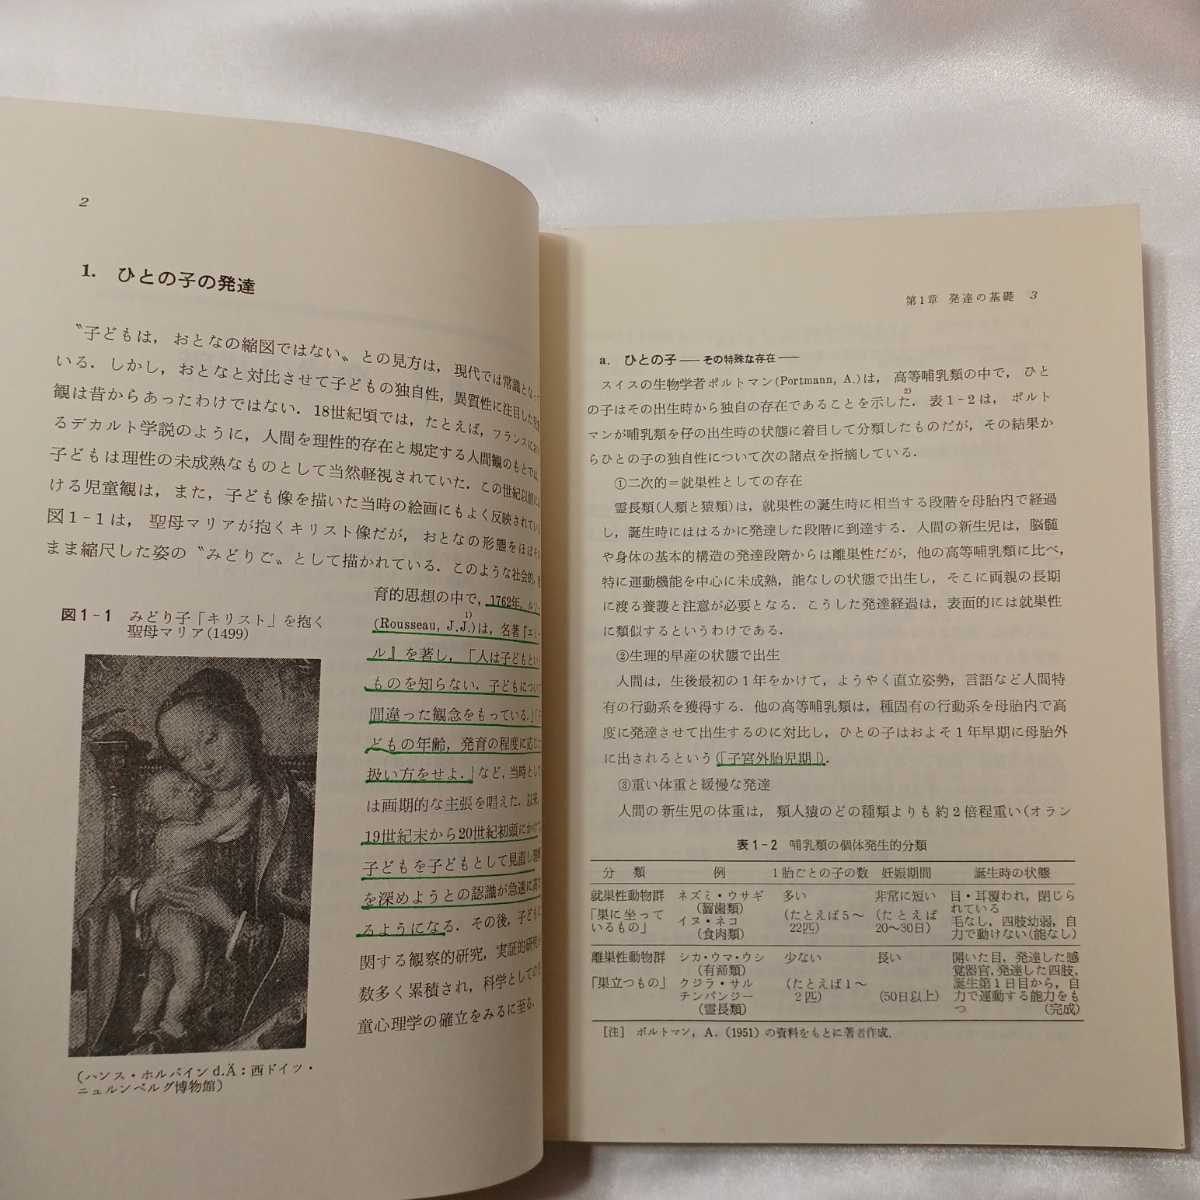 2
1. ひとの子の発達
〝子どもは，おとなの縮図ではない〟との見方は，現代では常識とな
いる．しかし，おとなと対比させて子どもの独自性，異質性に注目した
観は昔からあったわけではない．18世紀頃では，たとえば，フランスにお
るデカルト学説のように，人間を理性的存在と規定する人間観のもとでは，
子どもは理性の未成熟なものとして当然軽視されていた．この世紀以前に
ける児童観は，また，子ども像を描いた当時の絵画にもよく反映されている
図1-1は，聖母マリアが抱くキリスト像だが，おとなの形態をほぼ
まま縮尺した姿の〝みどりご〟として描かれている．このような社会的，
育的思想の中で，1762年，ルソー
(Rousseau, J.J.)¹⁾は，名著『エミー
ル』を著し，「人は子どもという
ものを知らない．子どもについて
間違った観念をもっている．」「子
どもの年齢，発育の程度に応じた
扱い方をせよ．」など，当時として
は画期的な主張を唱えた．以来，
19世紀末から20世紀初頭にかけて
子どもを子どもとして見直し
を深めようとの認識が急速に高
るようになる．その後，子どもに
関する観察的研究，実証的研究が
数多く累積され，科学としての
童心理学の確立をみるに至る．
図1-1 みどり子「キリスト」を抱く
聖母マリア(1499)
(ハンス・ホルバインd.Ä：西ドイツ・
ニュルンベルグ博物館)
第1章 発達の基礎 3
a. ひとの子——その特殊な存在——
スイスの生物学者ポルトマン(Portmann, A.)は，高等哺乳類の中で，ひと
の子はその出生時から独自の存在であることを示した²⁾．表1-2は，ポルト
マンが哺乳類を仔の出生時の状態に着目して分類したものだが，その結果か
らひとの子の独自性について次の諸点を指摘している．
①二次的＝就巣性としての存在
霊長類(人類と猿類)は，就巣性の誕生時に相当する段階を母胎内で経過
し，誕生時にははるかに発達した段階に到達する．人間の新生児は，脳髄
や身体の基本的構造の発達段階からは離巣性だが，他の高等哺乳類に比べ，
特に運動機能を中心に未成熟，能なしの状態で出生し，そこに両親の長期
に渡る養護と注意が必要となる．こうした発達経過は，表面的には就巣性
に類似するというわけである．
②生理的早産の状態で出生
人間は，生後最初の1年をかけて，ようやく直立姿勢，言語など人間特
有の行動系を獲得する．他の高等哺乳類は，種固有の行動系を母胎内で高
度に発達させて出生するのに対比し，ひとの子はおよそ1年早期に母胎外
に出されるという(「子宮外胎児期」)．
③重い体重と緩慢な発達
人間の新生児の体重は，類人猿のどの種類よりも約2倍程重い(オラン
表1-2 哺乳類の個体発生的分類
分類 例 1胎ごとの子の数 妊娠期間 誕生時の状態
就巣性動物群 ネズミ・ウサギ 多い 非常に短い 目・耳覆われ，閉じら
れている
「巣に坐って (齧歯類) (たとえば5～ (たとえば
いるもの」 イヌ・ネコ 22匹) 20～30日) 毛なし，四肢幼弱，自
(食肉類) 力で動けない(能なし)
離巣性動物群 シカ・ウマ・ウシ 少ない 長い 開いた目，発達した感
(有蹄類) 覚器官，発達した四肢，
「巣立つもの」 クジラ・サル (たとえば1～ 誕生第1日目から，自
チンパンジー 2匹) (50日以上) 力で運動する能力をも
(霊長類) つ (完成)
［注］ ポルトマン，A．(1951) の資料をもとに著者作成．